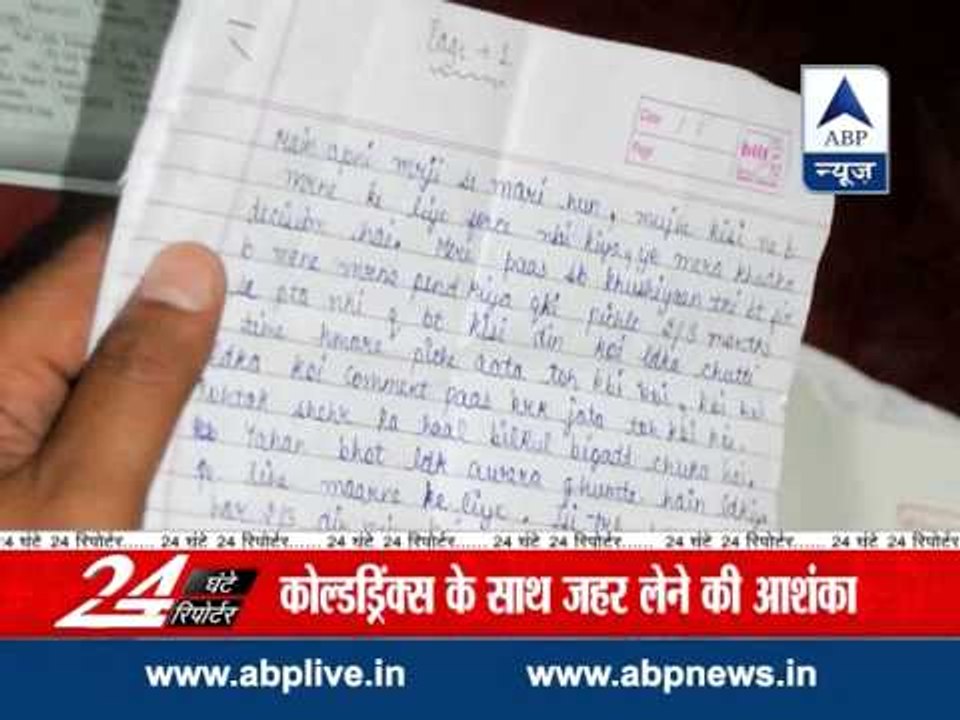 Page + 1
Date
Page
ABP
न्यूज़
Main apni mrji se mari hun, mujhe kisi ne b
marne ke liye force nhi kiya, ye mera khudka
decision hai. Meri paas sb khushiyaan thi bt fir
b mene marna pend kiya qki pichle 2/3 months
se pta nhi q bt kisi din koi ldka chutti
time hmare piche aata toh kbi koi, koi koi
ldka koi comment paas krk jata toh kbi koi.
Rohtak shehr ka haal bilkul bigadd chuka hai,
Yahan bhot ldk awara ghumte hain ldkiya
ke liye maarne ke liye.
har 2/3 din
24 घंटे 24 रिपोर्टर...... 24 घंटे 24 रिपोर्टर...... 24 घंटे 24 रिपोर्टर...... 24 घंटे 24 रिपोर्टर...... 24 घंटे 24 रिपोर्टर...... 24 घंटे 24 रिपोर्टर
24 घंटे रिपोर्टर
कोल्डड्रिंक्स के साथ जहर लेने की आशंका
www.abplive.in www.abpnews.in